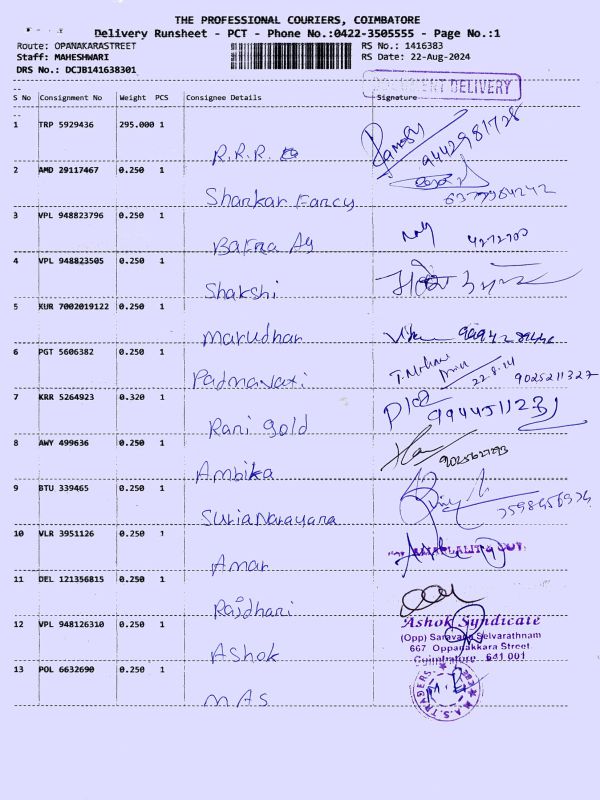 THE PROFESSIONAL COURIERS, COIMBATORE
Delivery Runsheet - PCT - Phone No.:0422-3505555 - Page No.:1
Route: OPANAKARASTREET RS No.: 1416383
Staff: MAHESHWARI RS Date: 22-Aug-2024
DRS No.: DCJB141638301
DELIVERY
S No Consignment No Weight PCS Consignee Details Signature
1 TRP 5929436 295.000 1 R.R.R. 9442981728
2 AMD 29117467 0.250 1 Shankar Fancy
3 VPL 948823796 0.250 1 Bafna Ag
4 VPL 948823505 0.250 1 Shakshi
5 KUR 7002019122 0.250 1 Marudhar
6 PGT 5606382 0.250 1 Padmavati 22.8.24 9025211327
7 KRR 5264923 0.320 1 Rani gold
8 AWY 499636 0.250 1 Ambika
9 BTU 339465 0.250 1 SuriaNarayana
10 VLR 3951126 0.250 1 Amar
11 DEL 121356815 0.250 1 Rajdhani
12 VPL 948126310 0.250 1 Ashok
Ashok Syndicate
(Opp) Saravana Selvarathnam
667 Oppanakkara Street
Coimbatore 641 001
13 POL 6632690 0.250 1 M.A.S
M.A.S. TRADERS